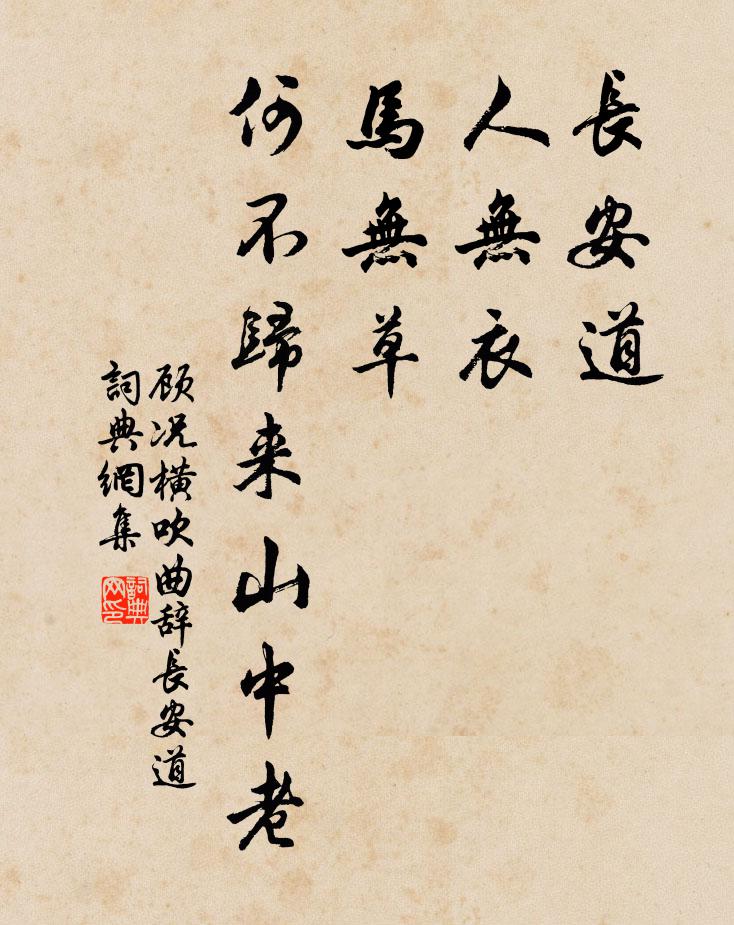 長安道
人無衣
馬無草
何不歸来山中老
顾况横吹曲辞長安道
詞典網集
詞典网印